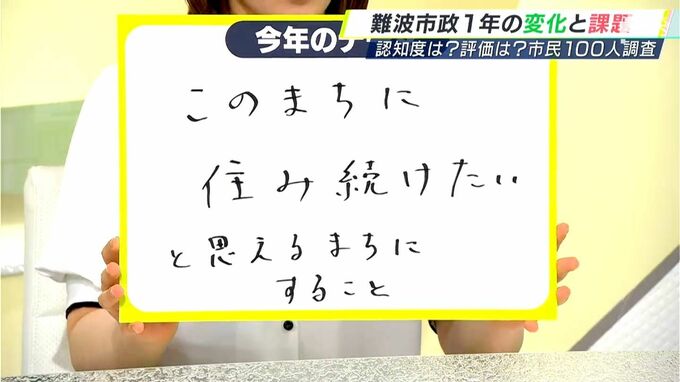 難波市政1年の変化と課題
認知度は?評価は?市民100人調査
今年の
このまちに
住み続けたい
と思えるまちに
すること